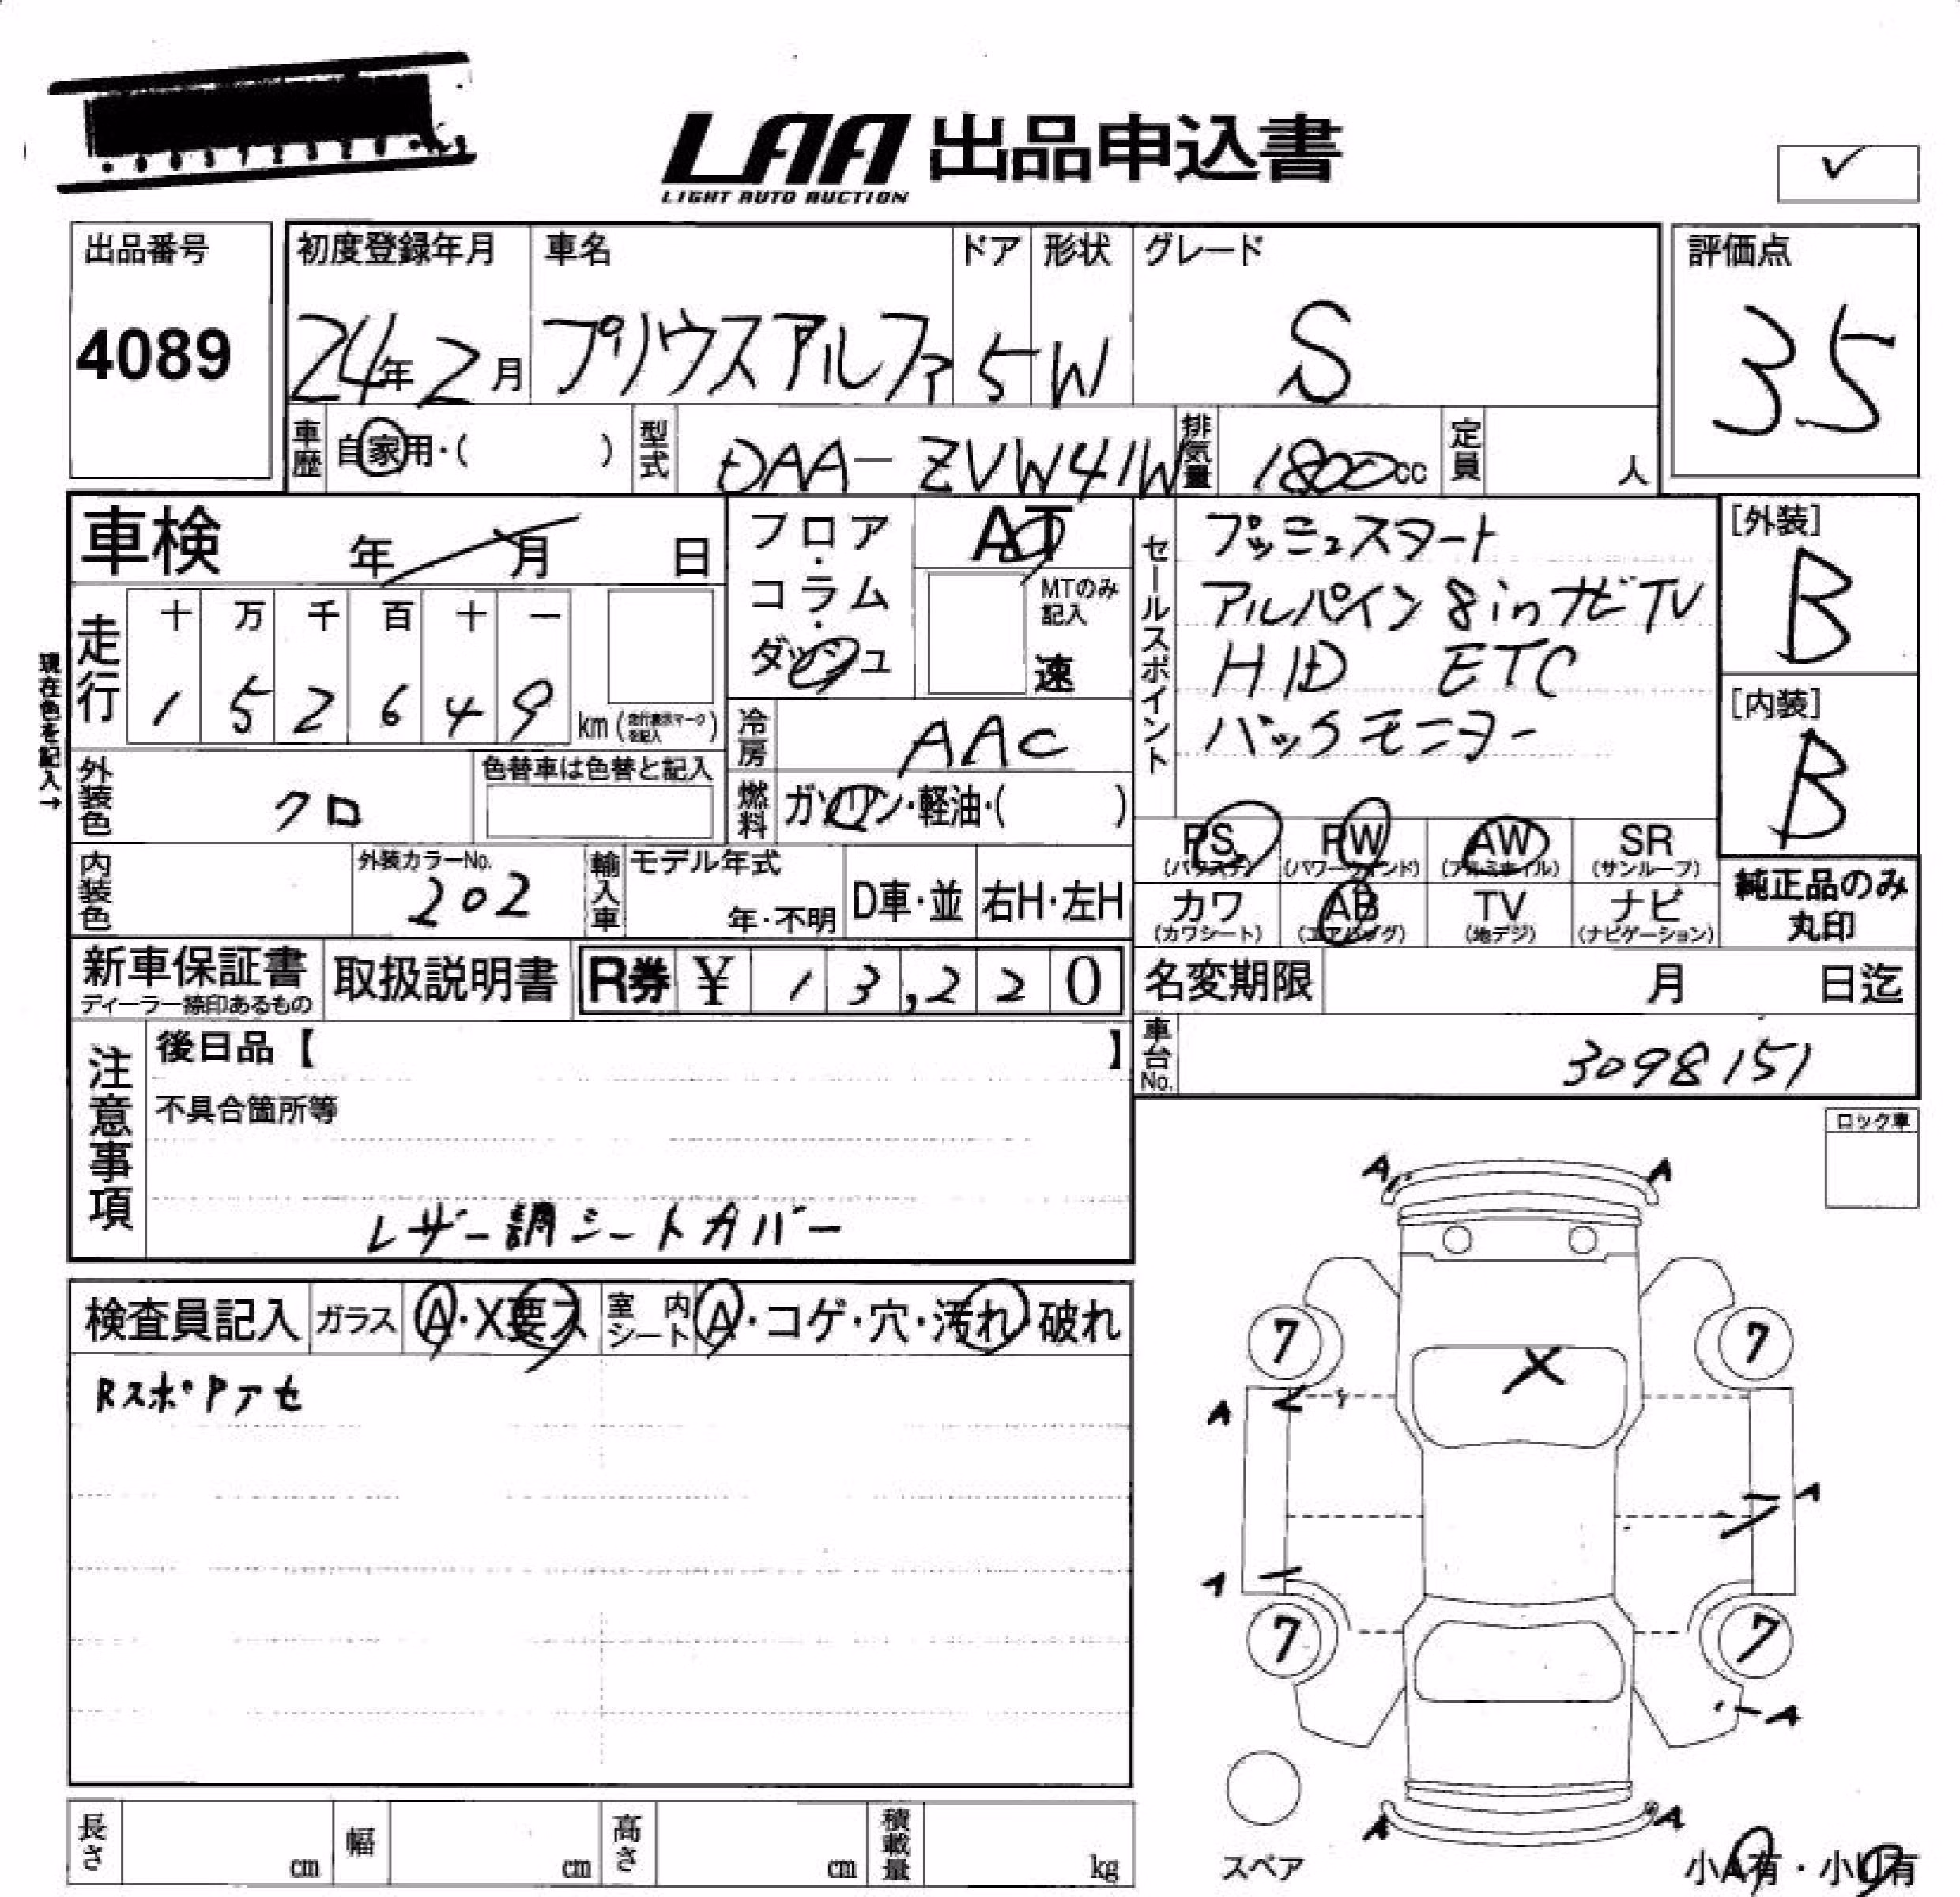 LAA 出品申込書
LIGHT AUTO AUCTION
✓
出品番号
4089
初度登録年月
24年2月
車名
プリウスアルファ
ドア
5
形状
W
グレード
S
評価点
3.5
車歴
自家用・( )
型式
DAA-ZVW41W
排気量
1800cc
定員
人
車検 年 月 日
フロア・コラム・ダッシュ
AT
MTのみ記入
速
セールスポイント
プッシュスタート
アルパイン 8inナビTV
HID ETC
バックモニター
[外装]
B
[内装]
B
現在色を記入→
走行
十 万 千 百 十 一
1 5 2 6 4 9
km(走行表示マークを記入)
冷房
AAC
外装色
クロ
色替車は色替と記入
燃料
ガソリン・軽油・( )
PS
(パワステ)
PW
(パワーウィンド)
AW
(アルミホイル)
SR
(サンルーフ)
内装色
外装カラーNo.
202
輸入車
モデル年式
年・不明
D車・並
右H・左H
カワ
(カワシート)
AB
(エアバッグ)
TV
(地デジ)
ナビ
(ナビゲーション)
純正品のみ
丸印
新車保証書
ディーラー捺印あるもの
取扱説明書
R券 ¥ 13,220
名変期限 月 日迄
車台No.
3098151
注意事項
後日品【 】
不具合箇所等
レザー調シートカバー
ロック車
検査員記入
ガラス
A・X要ス
室内シート
A・コゲ・穴・汚れ・破れ
RスポPアセ
A A
7 7
X
A
A
7 7
A
A A
スペア
小A有・小U有
長さ cm
幅 cm
高さ cm
積載量 kg